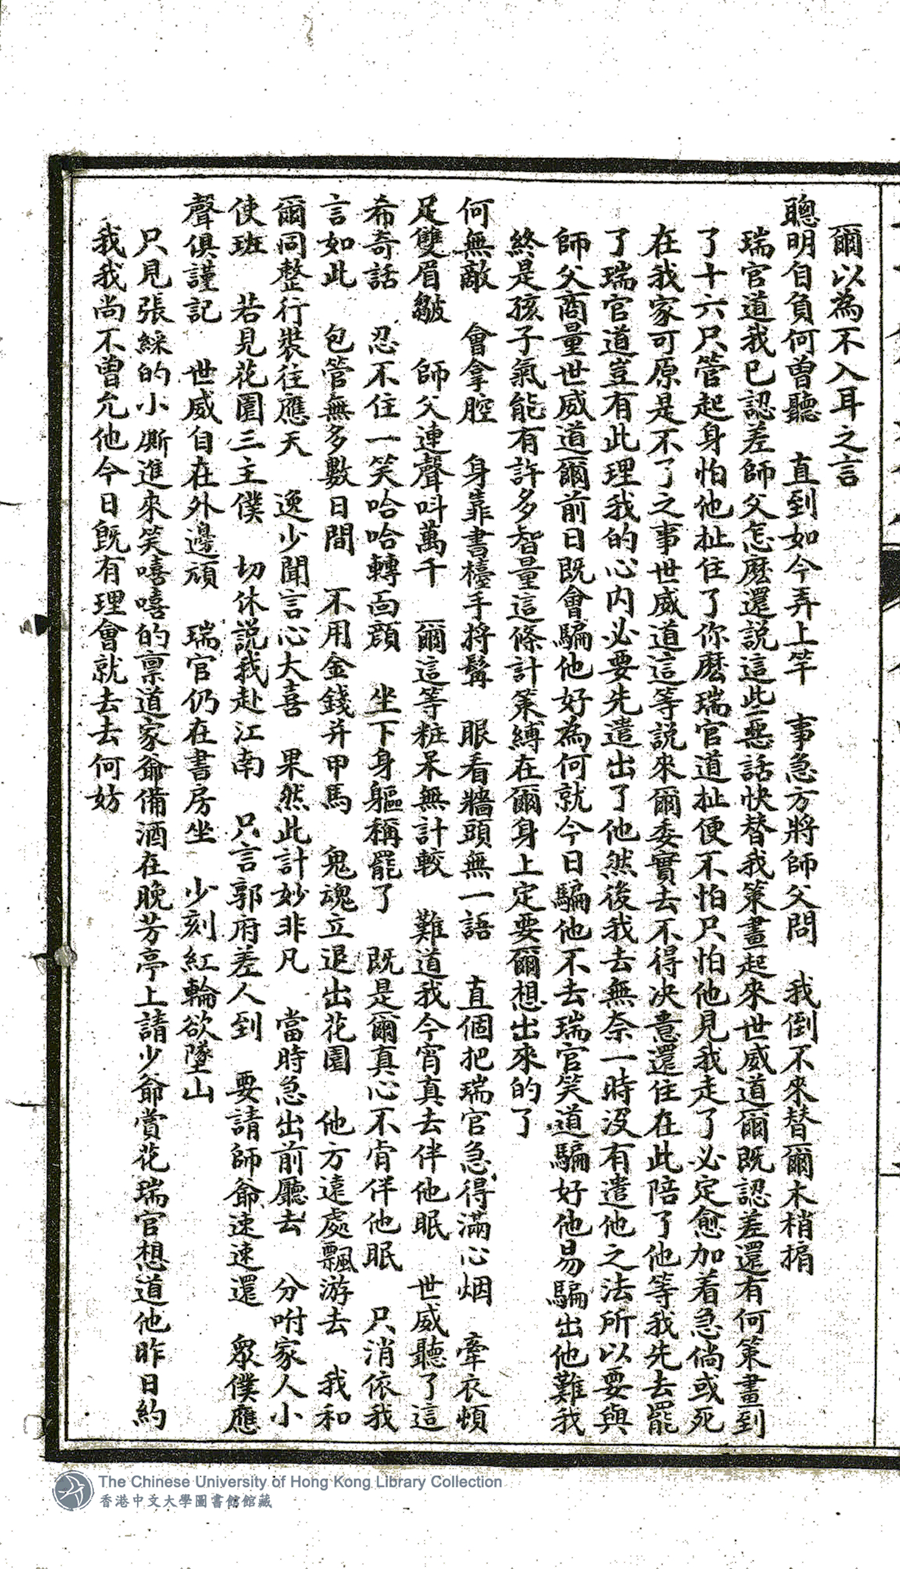 爾以為不入耳之言
聰明自負何曾聽　直到如今弄上竿　事急方將師父問　我倒不來替爾木梢掮
瑞官道我已認差師父怎麽還説這些惡話快替我策畫起來世威道爾既認差還有何策畫到
了十六只管起身怕他扯住了你麽瑞官道扯便不怕只怕他見我走了必定愈加着急倘或死
在我家可原是不了之事世威道這等説來爾委實去不得决意還住在此陪了他等我先去罷
了瑞官道豈有此理我的心内必要先遣出了他然後我去無奈一時没有遣他之法所以要與
師父商量世威道爾前日既會騙他好為何就今日騙他不去瑞官笑道騙好他易騙出他難我
終是孩子氣能有許多智量這條計策縛在爾身上定要爾想出來的了
何無敵　會拿腔　身靠書檯手捋髯　眼看牆頭無一語　直個把瑞官急得滿心烟　牽衣頓
足雙眉皺　師父連聲呌萬千　爾這等粧呆無計較　難道我今宵真去伴他眠　世威聽了這
希奇話　忍不住一笑哈哈轉面顔　坐下身軀稱罷了　既是爾真心不肯伴他眠　只消依我
言如此　包管無多數日間　不用金錢并甲馬　鬼魂立退出花園　他方遠處飄游去　我和
爾同整行裝往應天　逸少聞言心大喜　果然此計妙非凡　當時急出前廳去　分咐家人小
使班　若見花園三主僕　切休説我赴江南　只言郭府差人到　要請師爺速速還　衆僕應
聲俱謹記　世威自在外邊頑　瑞官仍在書房坐　少刻紅輪欲墜山
只見張綵的小厮進來笑嘻嘻的禀道家爺備酒在晚芳亭上請少爺賞花瑞官想道他昨日約
我我尚不曾允他今日既有理會就去去何妨
The Chinese University of Hong Kong Library Collection
香港中文大學圖書館館藏